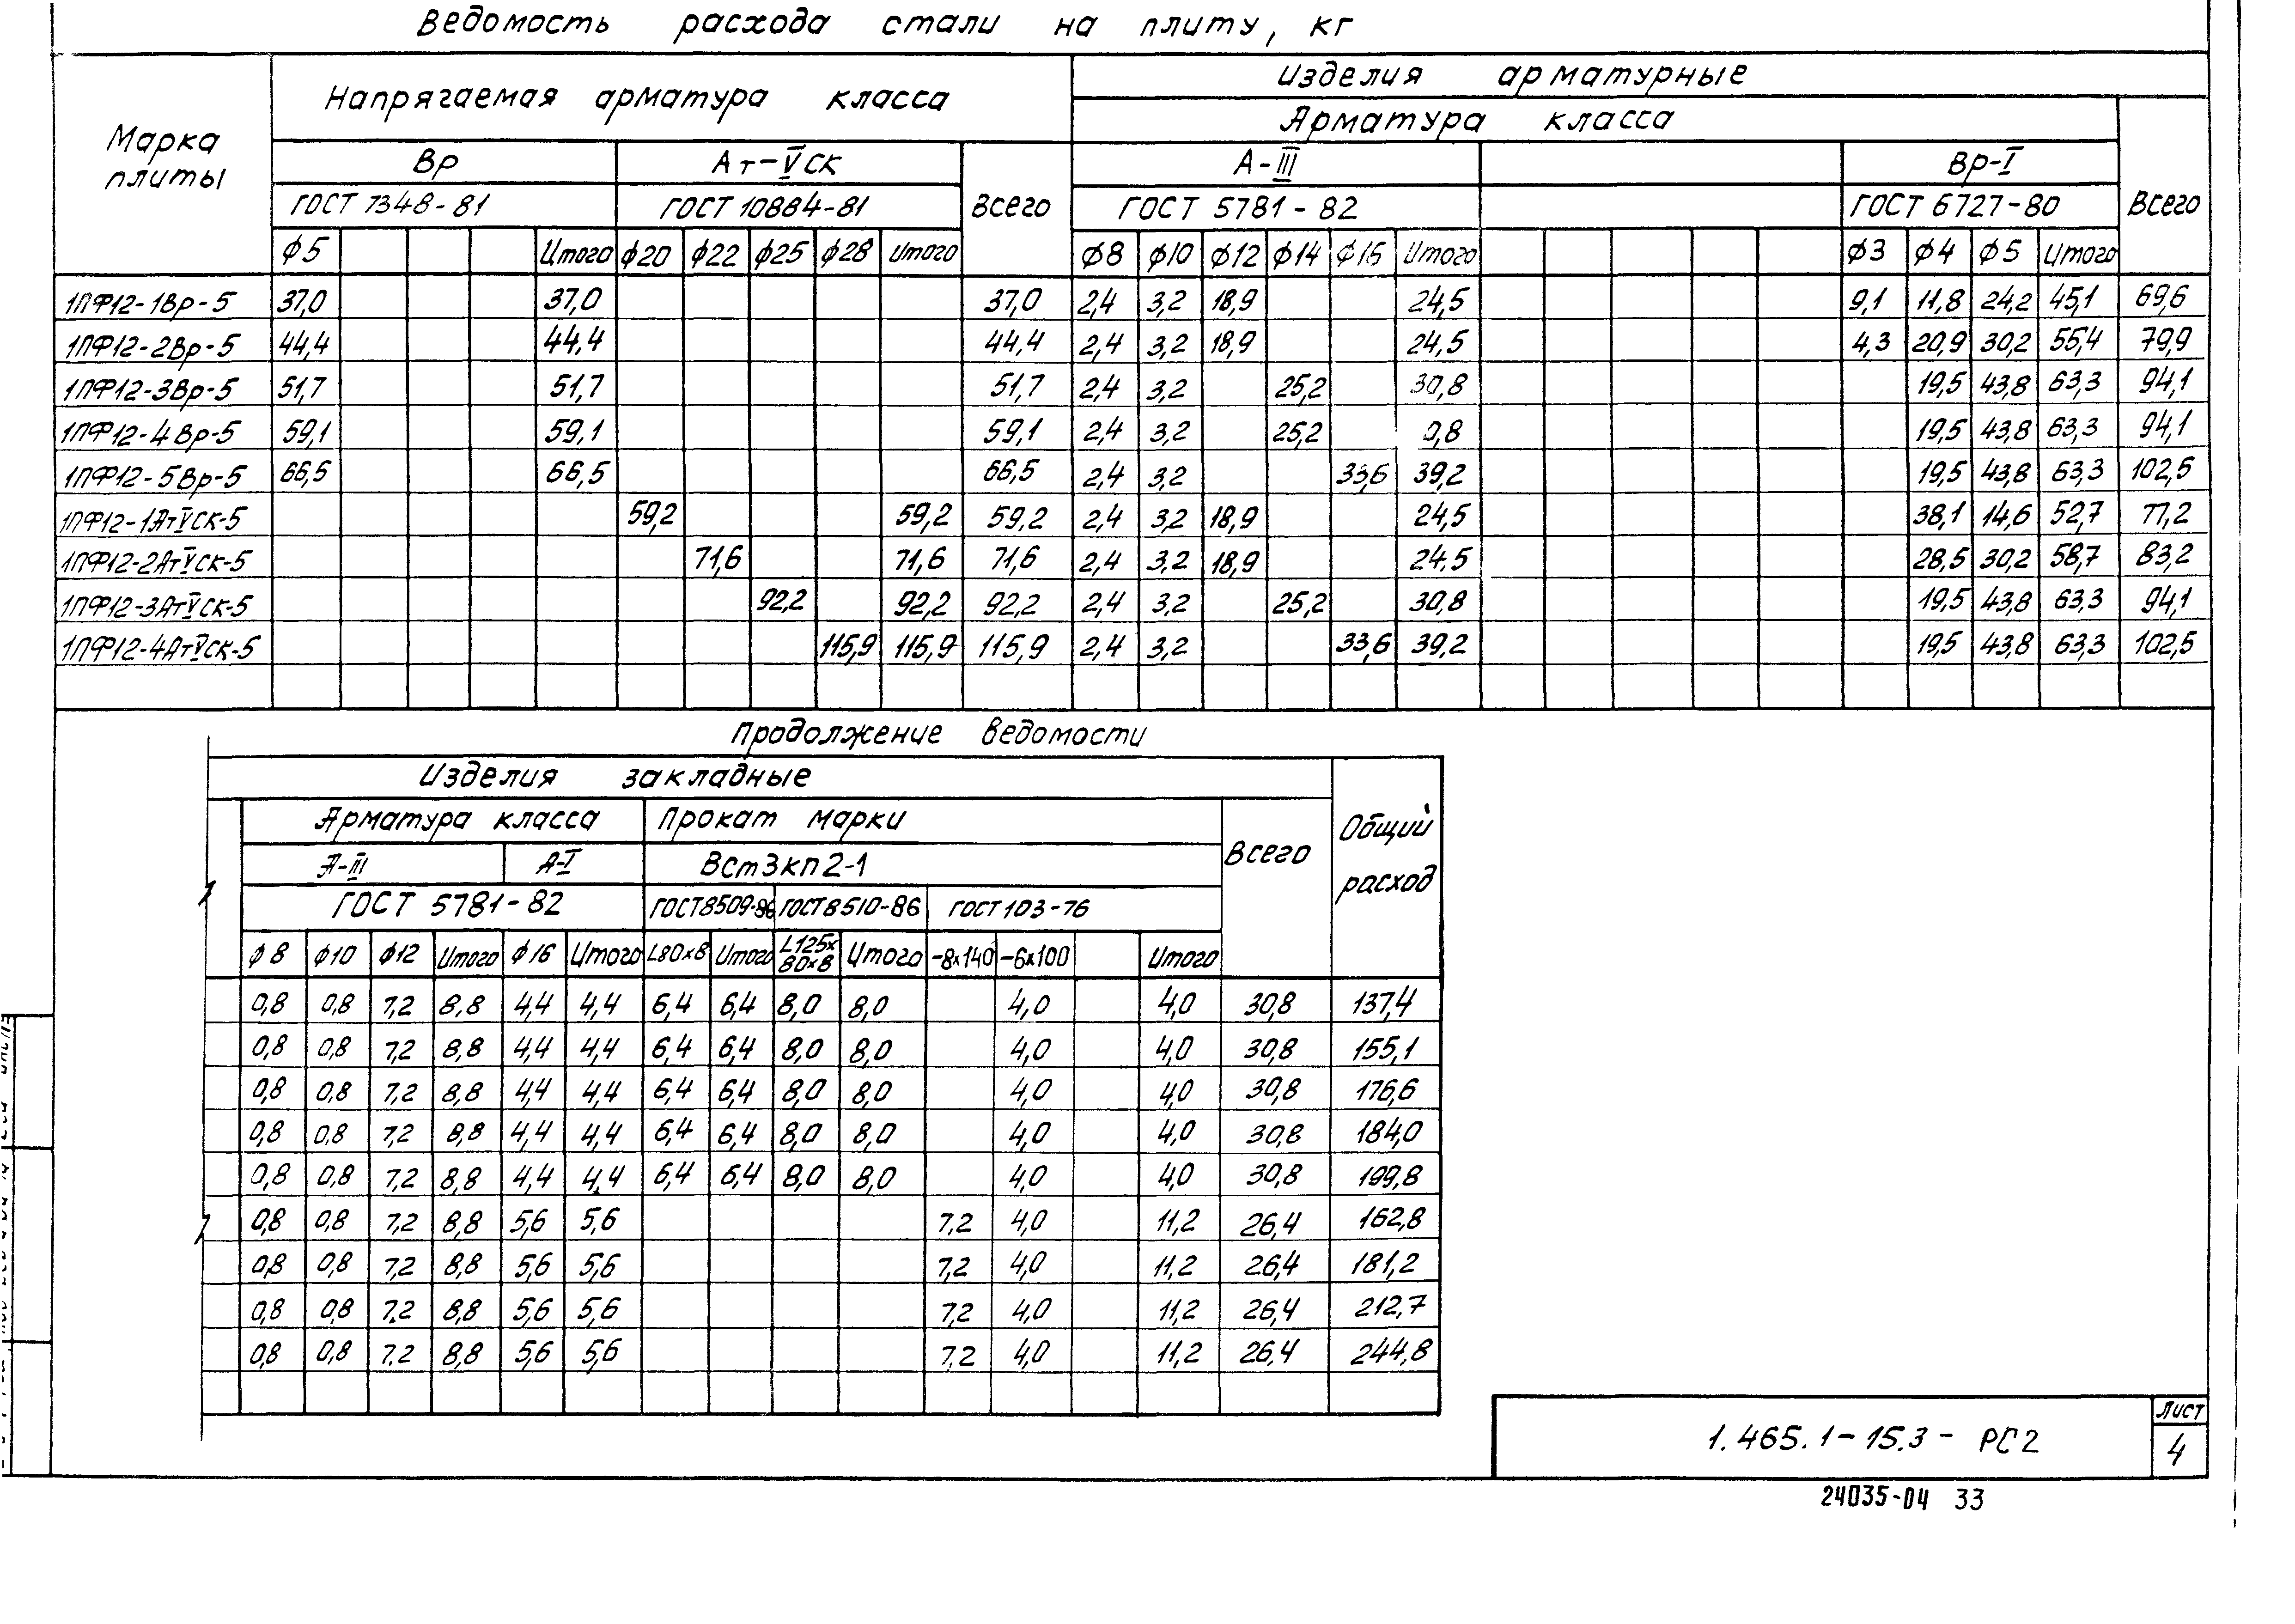 Ведомость расхода стали на плиту, кг
Марка плиты
Напрягаемая арматура класса
Изделия арматурные
Арматура класса
Вр
Ат-Vск
Всего
А-III
Вр-I
Всего
ГОСТ 7348-81
ГОСТ 10884-81
ГОСТ 5781-82
ГОСТ 6727-80
ф5 Итого ф20 ф22 ф25 ф28 Итого ф8 ф10 ф12 ф14 ф16 Итого ф3 ф4 ф5 Итого
1ПФ12-1Вр-5 37,0 37,0 37,0 2,4 3,2 18,9 24,5 9,1 11,8 24,2 45,1 69,6
1ПФ12-2Вр-5 44,4 44,4 44,4 2,4 3,2 18,9 24,5 4,3 20,9 30,2 55,4 79,9
1ПФ12-3Вр-5 51,7 51,7 51,7 2,4 3,2 25,2 30,8 19,5 43,8 63,3 94,1
1ПФ12-4Вр-5 59,1 59,1 59,1 2,4 3,2 25,2 0,8 19,5 43,8 63,3 94,1
1ПФ12-5Вр-5 66,5 66,5 66,5 2,4 3,2 33,6 39,2 19,5 43,8 63,3 102,5
1ПФ12-1АтVСК-5 59,2 59,2 59,2 2,4 3,2 18,9 24,5 38,1 14,6 52,7 77,2
1ПФ12-2АтVСК-5 71,6 71,6 71,6 2,4 3,2 18,9 24,5 28,5 30,2 58,7 83,2
1ПФ12-3АтVСК-5 92,2 92,2 92,2 2,4 3,2 25,2 30,8 19,5 43,8 63,3 94,1
1ПФ12-4АтVСК-5 115,9 115,9 115,9 2,4 3,2 33,6 39,2 19,5 43,8 63,3 102,5
Продолжение ведомости
Изделия закладные
Общий расход
Арматура класса
Прокат марки
Всего
А-III
А-I
ВСт3кп2-1
ГОСТ 5781-82
ГОСТ8509-86
ГОСТ8510-86
ГОСТ103-76
ф8 ф10 ф12 Итого ф16 Итого L80х8 Итого L125х80х8 Итого -8х140 -6х100 Итого
0,8 0,8 7,2 8,8 4,4 4,4 6,4 6,4 8,0 8,0 4,0 4,0 30,8 137,4
0,8 0,8 7,2 8,8 4,4 4,4 6,4 6,4 8,0 8,0 4,0 4,0 30,8 155,1
0,8 0,8 7,2 8,8 4,4 4,4 6,4 6,4 8,0 8,0 4,0 4,0 30,8 176,6
0,8 0,8 7,2 8,8 4,4 4,4 6,4 6,4 8,0 8,0 4,0 4,0 30,8 184,0
0,8 0,8 7,2 8,8 4,4 4,4 6,4 6,4 8,0 8,0 4,0 4,0 30,8 199,8
0,8 0,8 7,2 8,8 5,6 5,6 7,2 4,0 11,2 26,4 162,8
0,8 0,8 7,2 8,8 5,6 5,6 7,2 4,0 11,2 26,4 181,2
0,8 0,8 7,2 8,8 5,6 5,6 7,2 4,0 11,2 26,4 212,7
0,8 0,8 7,2 8,8 5,6 5,6 7,2 4,0 11,2 26,4 244,8
1.465.1-15.3-РС2
Лист
4
24035-04 33